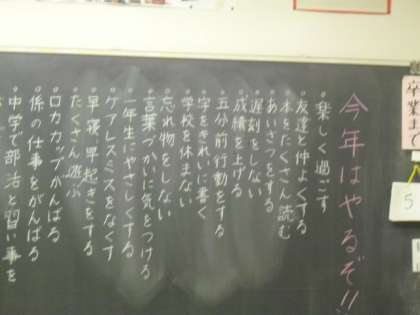 卒業まで
5
今年はやるぞ!!
・楽しく過ごす
・友達と仲よくする
・本をたくさん読む
・あいさつをする
・遅刻をしない
・成績を上げる
・五分前行動をする
・字をきれいに書く
・学校を休まない
・忘れ物をしない
・言葉づかいに気をつける
・一年生にやさしくする
・ケアレスミスをなくす
・早寝早起きをする
・たくさん遊ぶ
・ロカカップがんばる
・係の仕事をがんばる
・中学で部活と習い事を